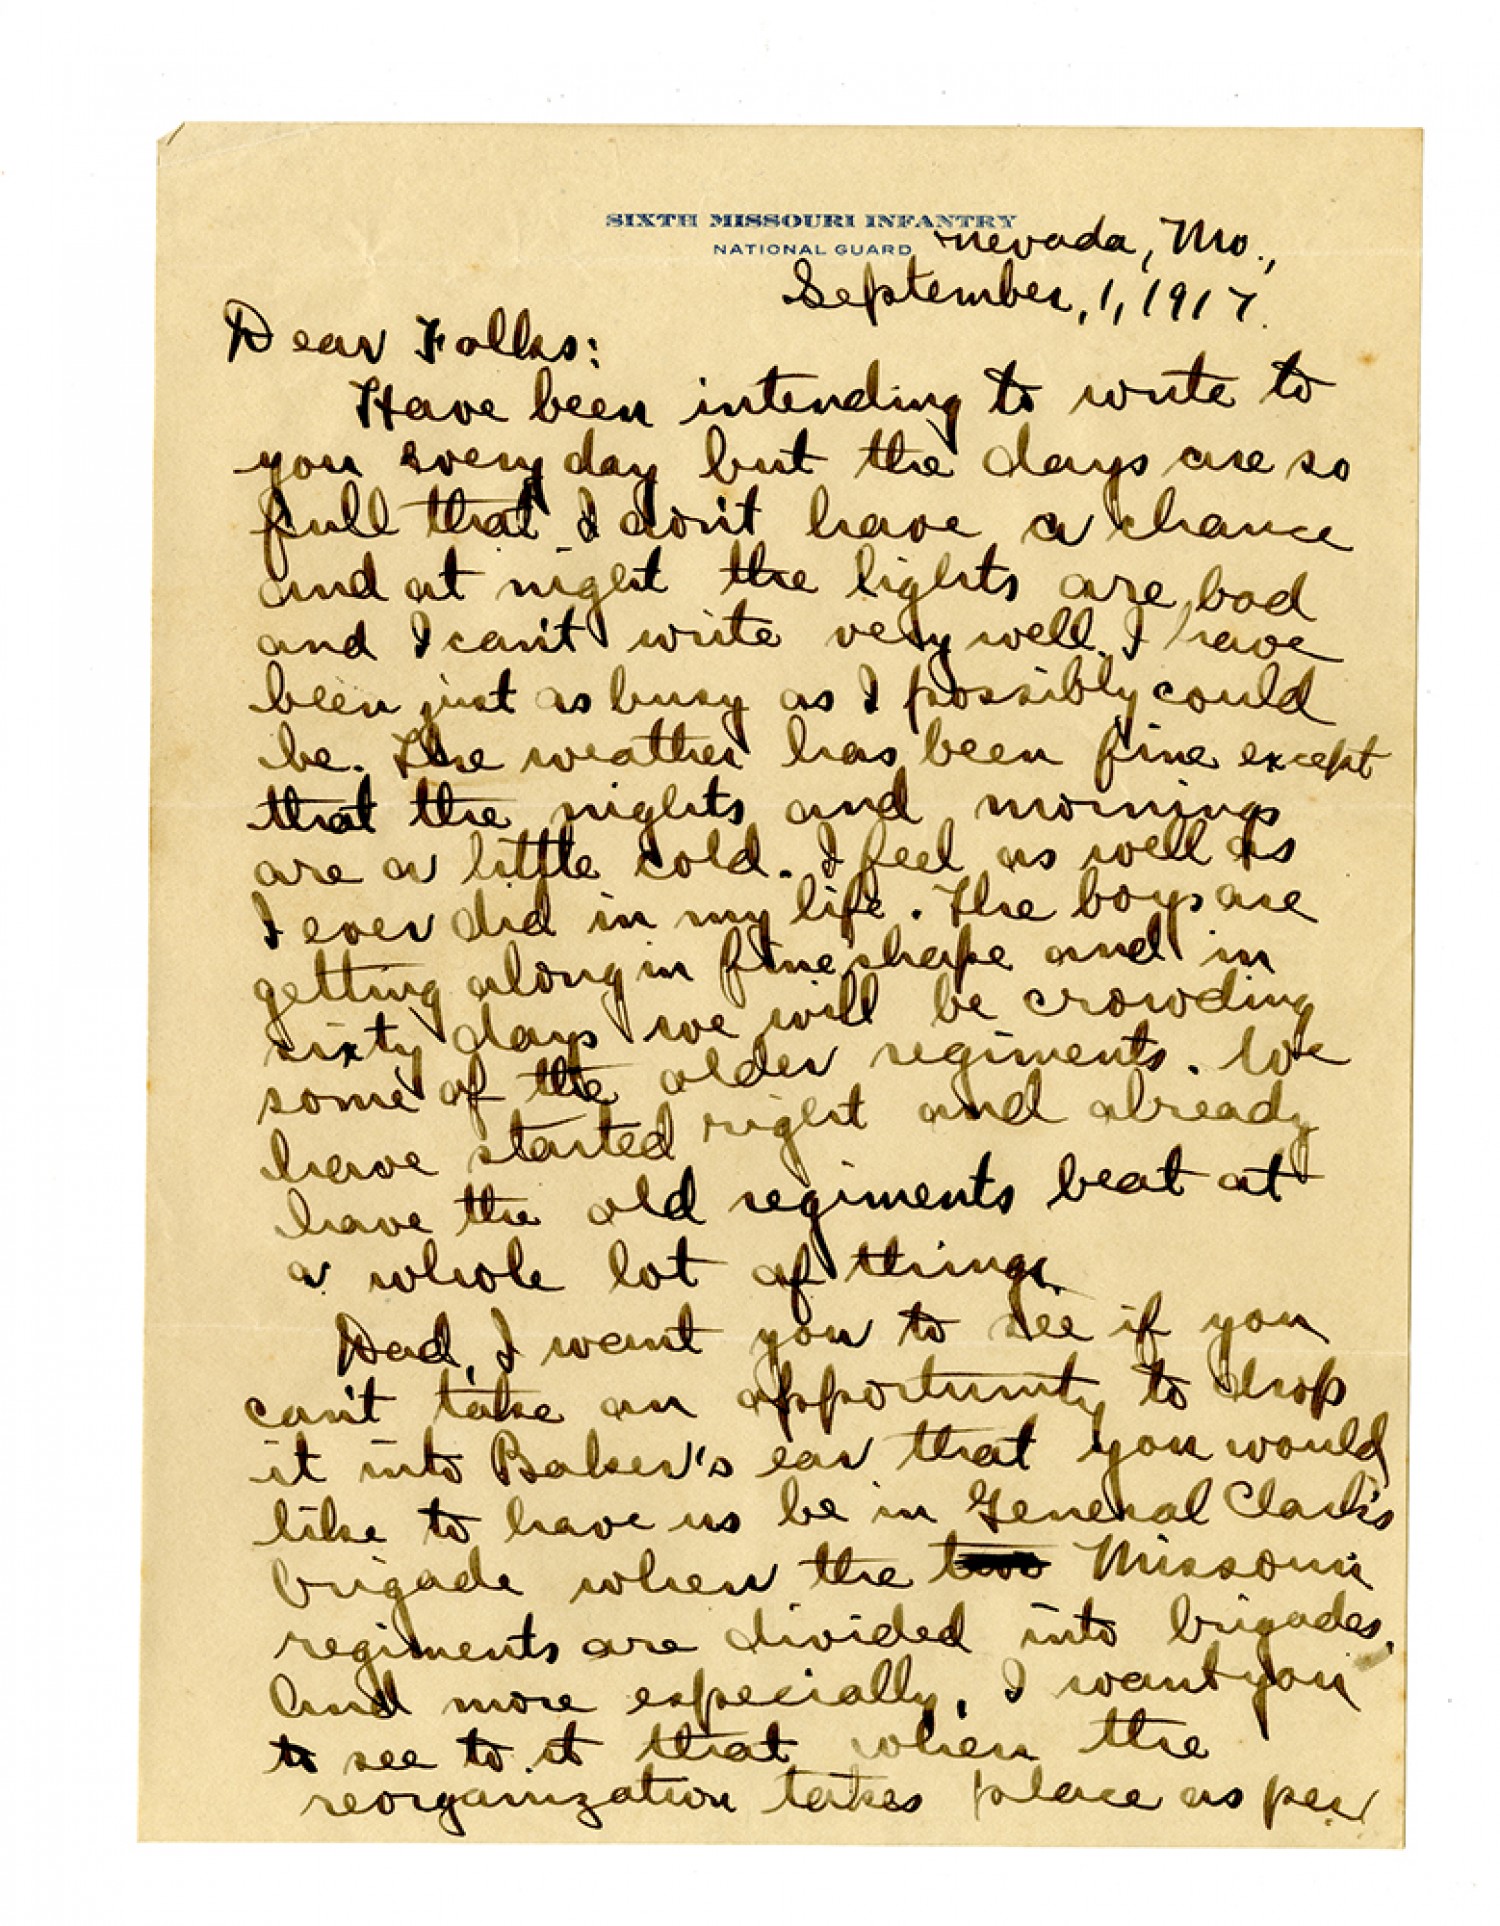 SIXTH MISSOURI INFANTRY
NATIONAL GUARD
Nevada, Mo.,
September, 1, 1917.
Dear Folks:
Have been intending to write to
you every day but the days are so
full that I don't have a chance
and at night the lights are bad
and I can't write very well. I have
been just as busy as I possibly could
be. The weather has been fine except
that the nights and mornings
are a little cold. I feel as well as
I ever did in my life. The boys are
getting along in fine shape and in
sixty days we will be crowding
some of the older regiments. We
have started right and already
have the old regiments beat at
a whole lot of things.
Dad, I want you to see if you
can't take an opportunity to drop
it into Baker's ear that you would
like to have us be in General Clark's
brigade when the two Missouri
regiments are divided into brigades.
And more especially, I want you
to see to it that when the
reorganization takes place as per